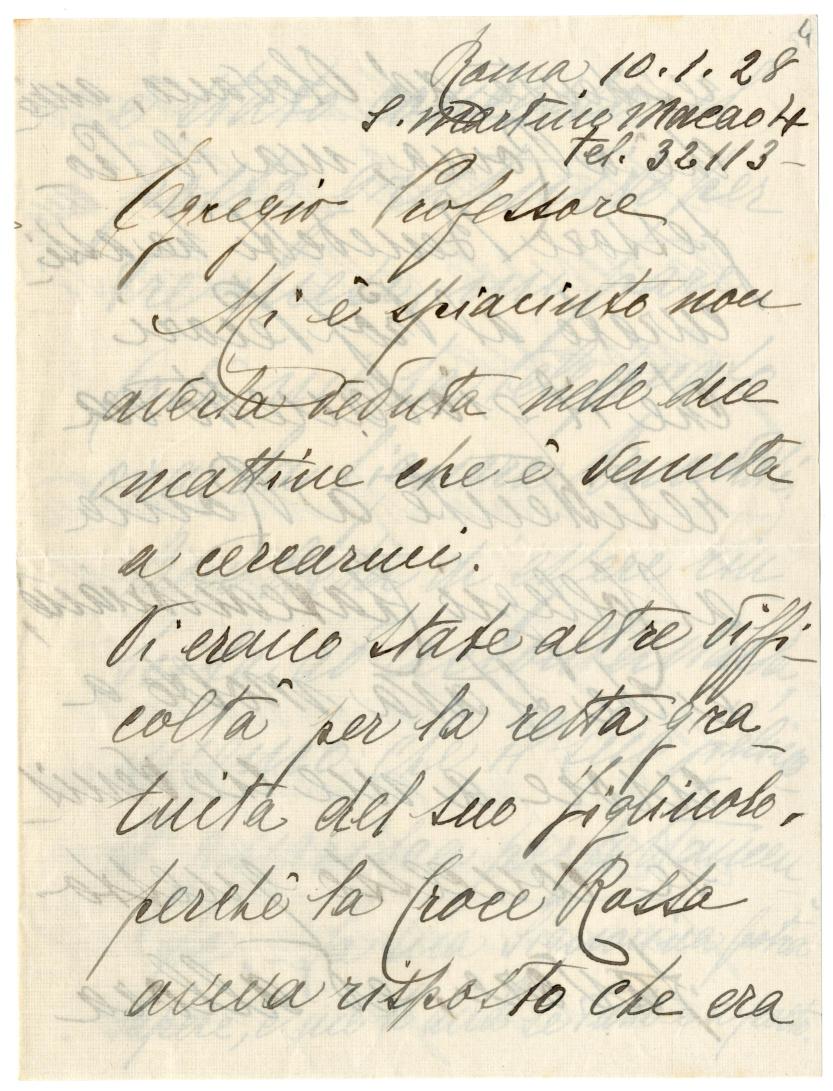 4
Roma 10.1.28
S. Martino Macao 4
Tel. 32113-
Egregio Professore
Mi è spiaciuto non
averla veduta nelle due
mattine che è venuta
a cercarmi.
Vi erano state altre diffi-
coltà per la retta gra-
tuita del suo figliuolo,
perchè la Croce Rossa
aveva risposto che era